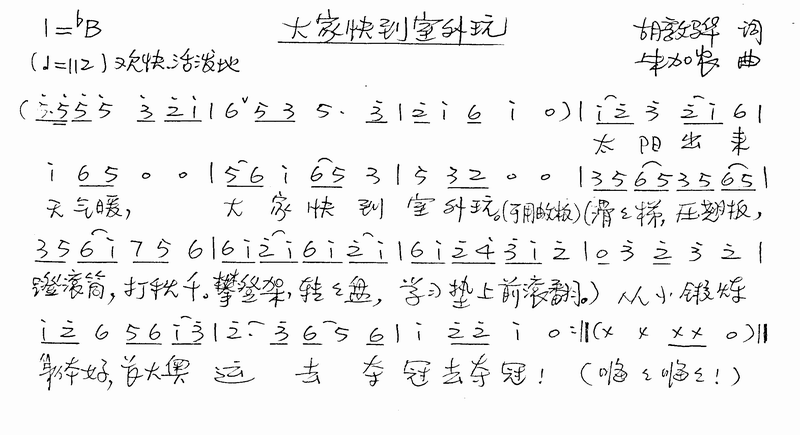 1=♭B 大家快到室外玩 胡敦骅 词
(♩=112) 欢快活泼地 牟加农 曲
(5̇ 5̇ 5 5 3̇ 2̇ 1̇ | 6ˇ 5 3 5· 3̇ | 2̇ 1̇ 6 1̇ 0) | 1̇ 2̇ 3̇ 2̇ 1̇ 6 |
太阳出来
1̇ 6 5 0 0 | 5 6 1̇ 6 5 3 | 5 3 2 0 0 | 3 5 6 5 3 5 6 5 |
天气暖, 大家快到室外玩。(滑々梯, 压翘板,
3 5 6 1̇ 7 5 6 | 6 1̇ 2̇ 1̇ 6 1̇ 2̇ 1̇ | 6 1̇ 2̇ 4̇ 3̇ 1̇ 2̇ | 0 3̇ 2̇ 3̇ 2̇ |
蹬滚筒, 打秋千。攀登架, 转々盘, 学习垫上前滚翻。) 从小锻炼
1̇ 2̇ 6 5 6 1̇ 3̇ | 2̇· 3̇ 6 5 6 | 1̇ 2̇ 2̇ 1̇ 0 :‖ (x x x x 0) ‖
身体好, 长大奥运去夺冠去夺冠! (嗨々嗨々!)